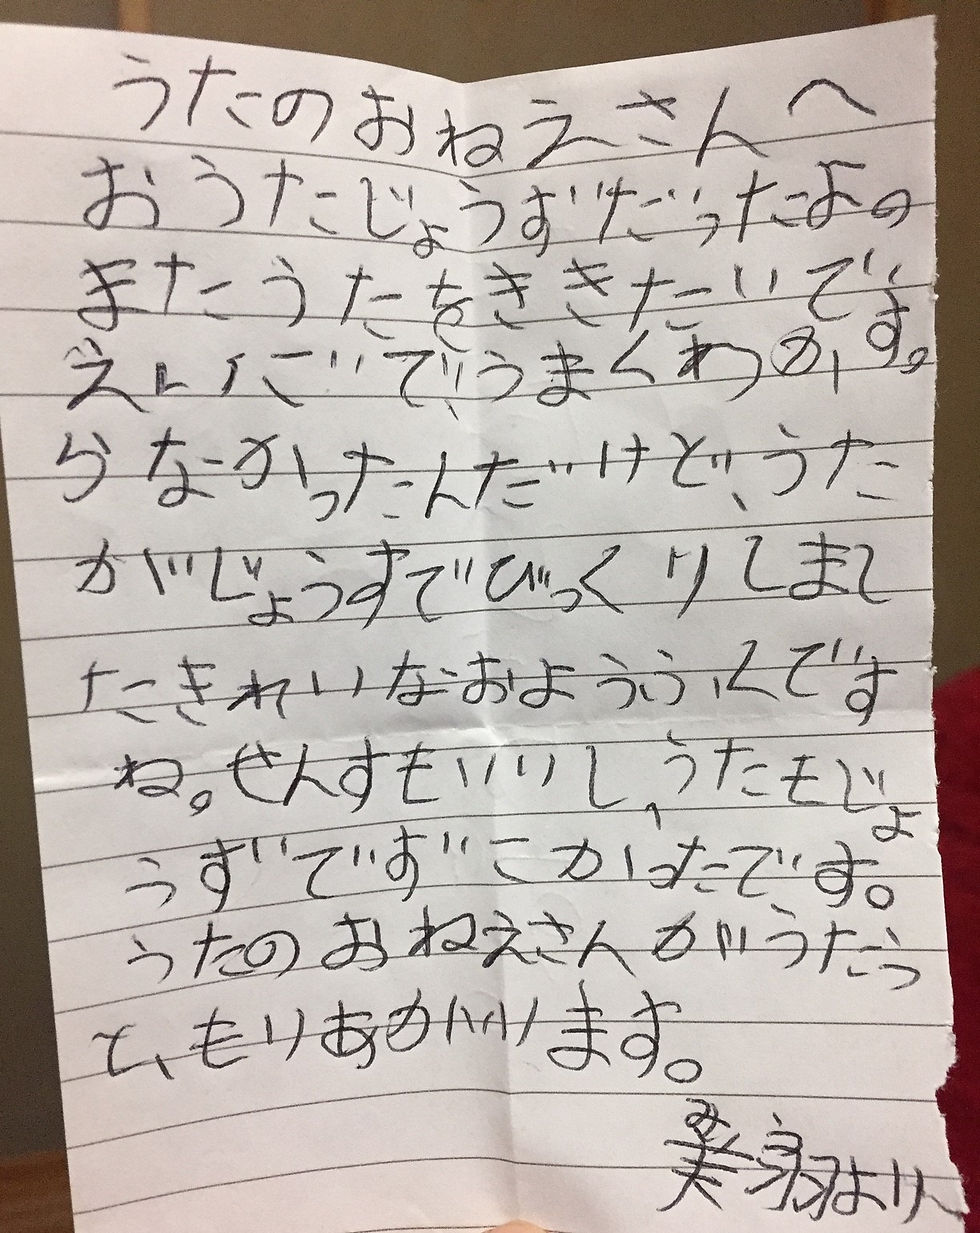 うたのおねえさんへ
おうたじょうずだったよの
またうたをききたいです。
えいごで、うまくわか
らなかったんだけど、うた
がじょうすでびっくりしまし
たきれいなおようふくです
ね。せんすもいいし、うたもじょ
うずですごかったです。
うたのおねえさんがうたう
と、もりあがります。
美羽より